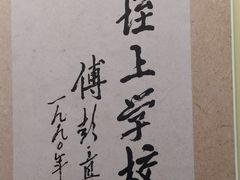 垤上学校
傅彭直
一九九〇年